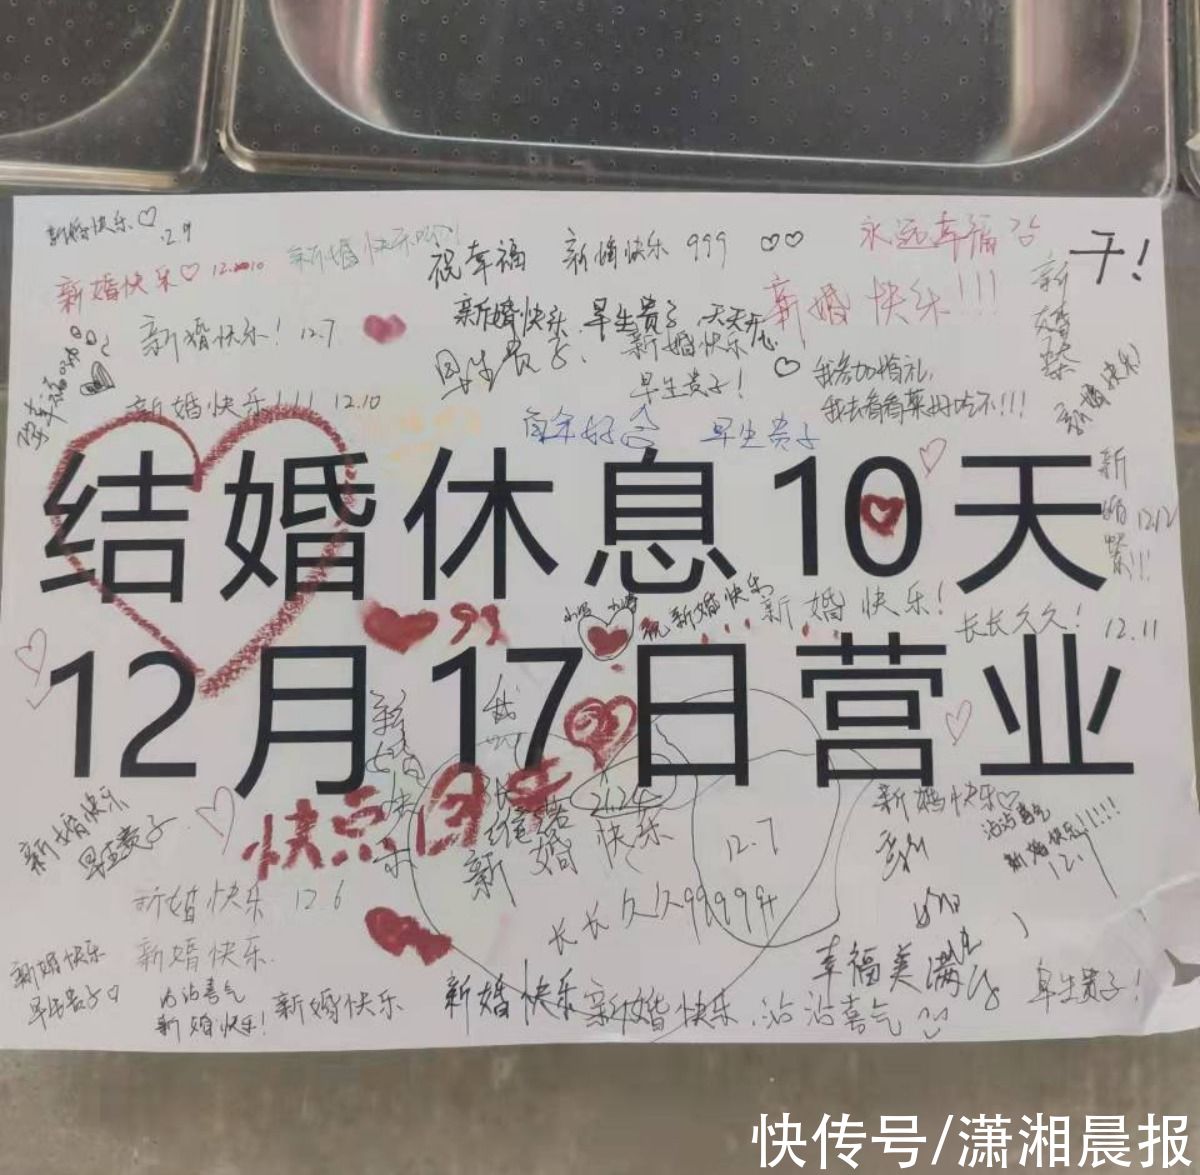 新婚快乐♡ 12.9
新婚快乐♡ 12.10
新婚快乐
祝幸福
新婚快乐 999 ♡♡
永远幸福
新婚快乐! 12.7
新婚快乐, 早生贵子, 天天开心
新婚快乐!!!
早生贵子.
新婚快乐
早生贵子!
♡ 我参加婚礼,
我去看看菜好吃不!!!
新婚快乐!
新婚快乐!!! 12.10
百年好合 早生贵子
结婚休息10天
新婚快乐!!! 12.12
99
祝新婚快乐
新婚快乐!
长长久久! 12.11
12月17日营业
新婚快乐
快点回
新婚快乐
早生贵子
新婚快乐
12.7
新婚快乐♡
沾沾喜气
新婚快乐!!!!!
新婚快乐 12.6
长长久久99999
新婚快乐
早生贵子♡
新婚快乐.
沾沾喜气
新婚快乐!
新婚快乐
新婚快乐
新婚快乐.沾沾喜气
幸福美满
早生贵子!
快传号/潇湘晨报